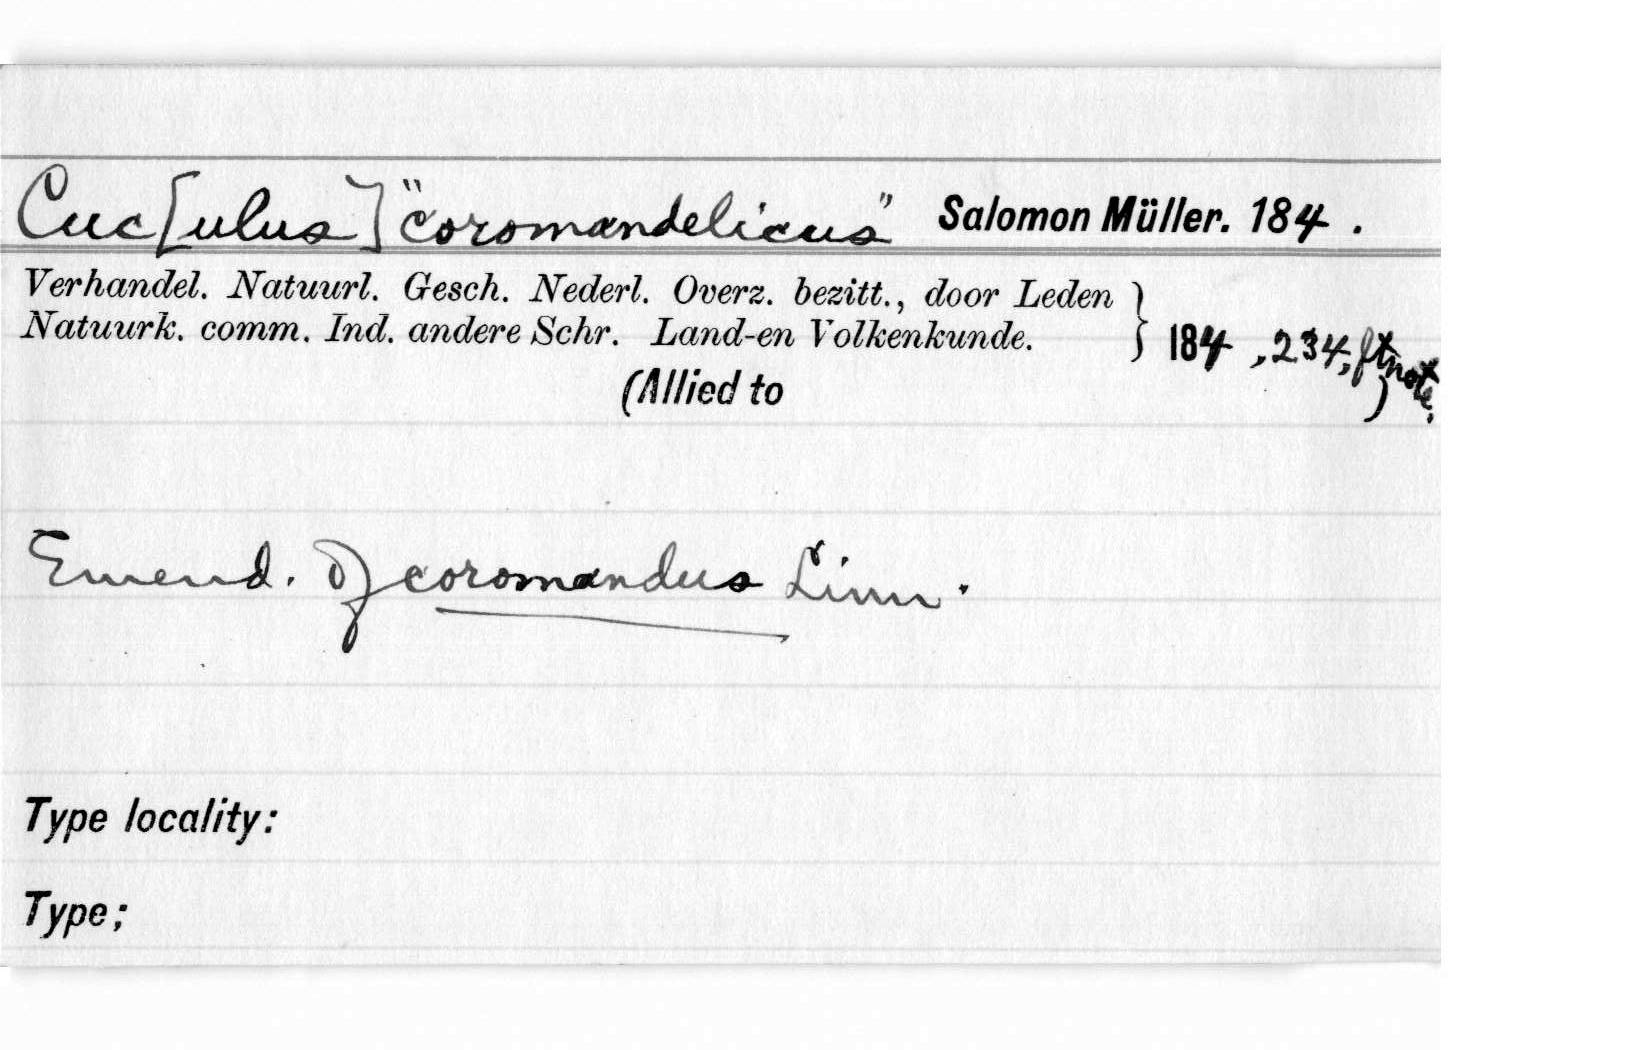 Cuc[ulus] "coromandelicus" Salomon Müller. 184 .
Verhandel. Natuurl. Gesch. Nederl. Overz. bezitt., door Leden
Natuurk. comm. Ind. andere Schr. Land-en Volkenkunde. } 184 , 234, ftnote.
(Allied to )
Emend. of coromandus Linn.
Type locality:
Type;